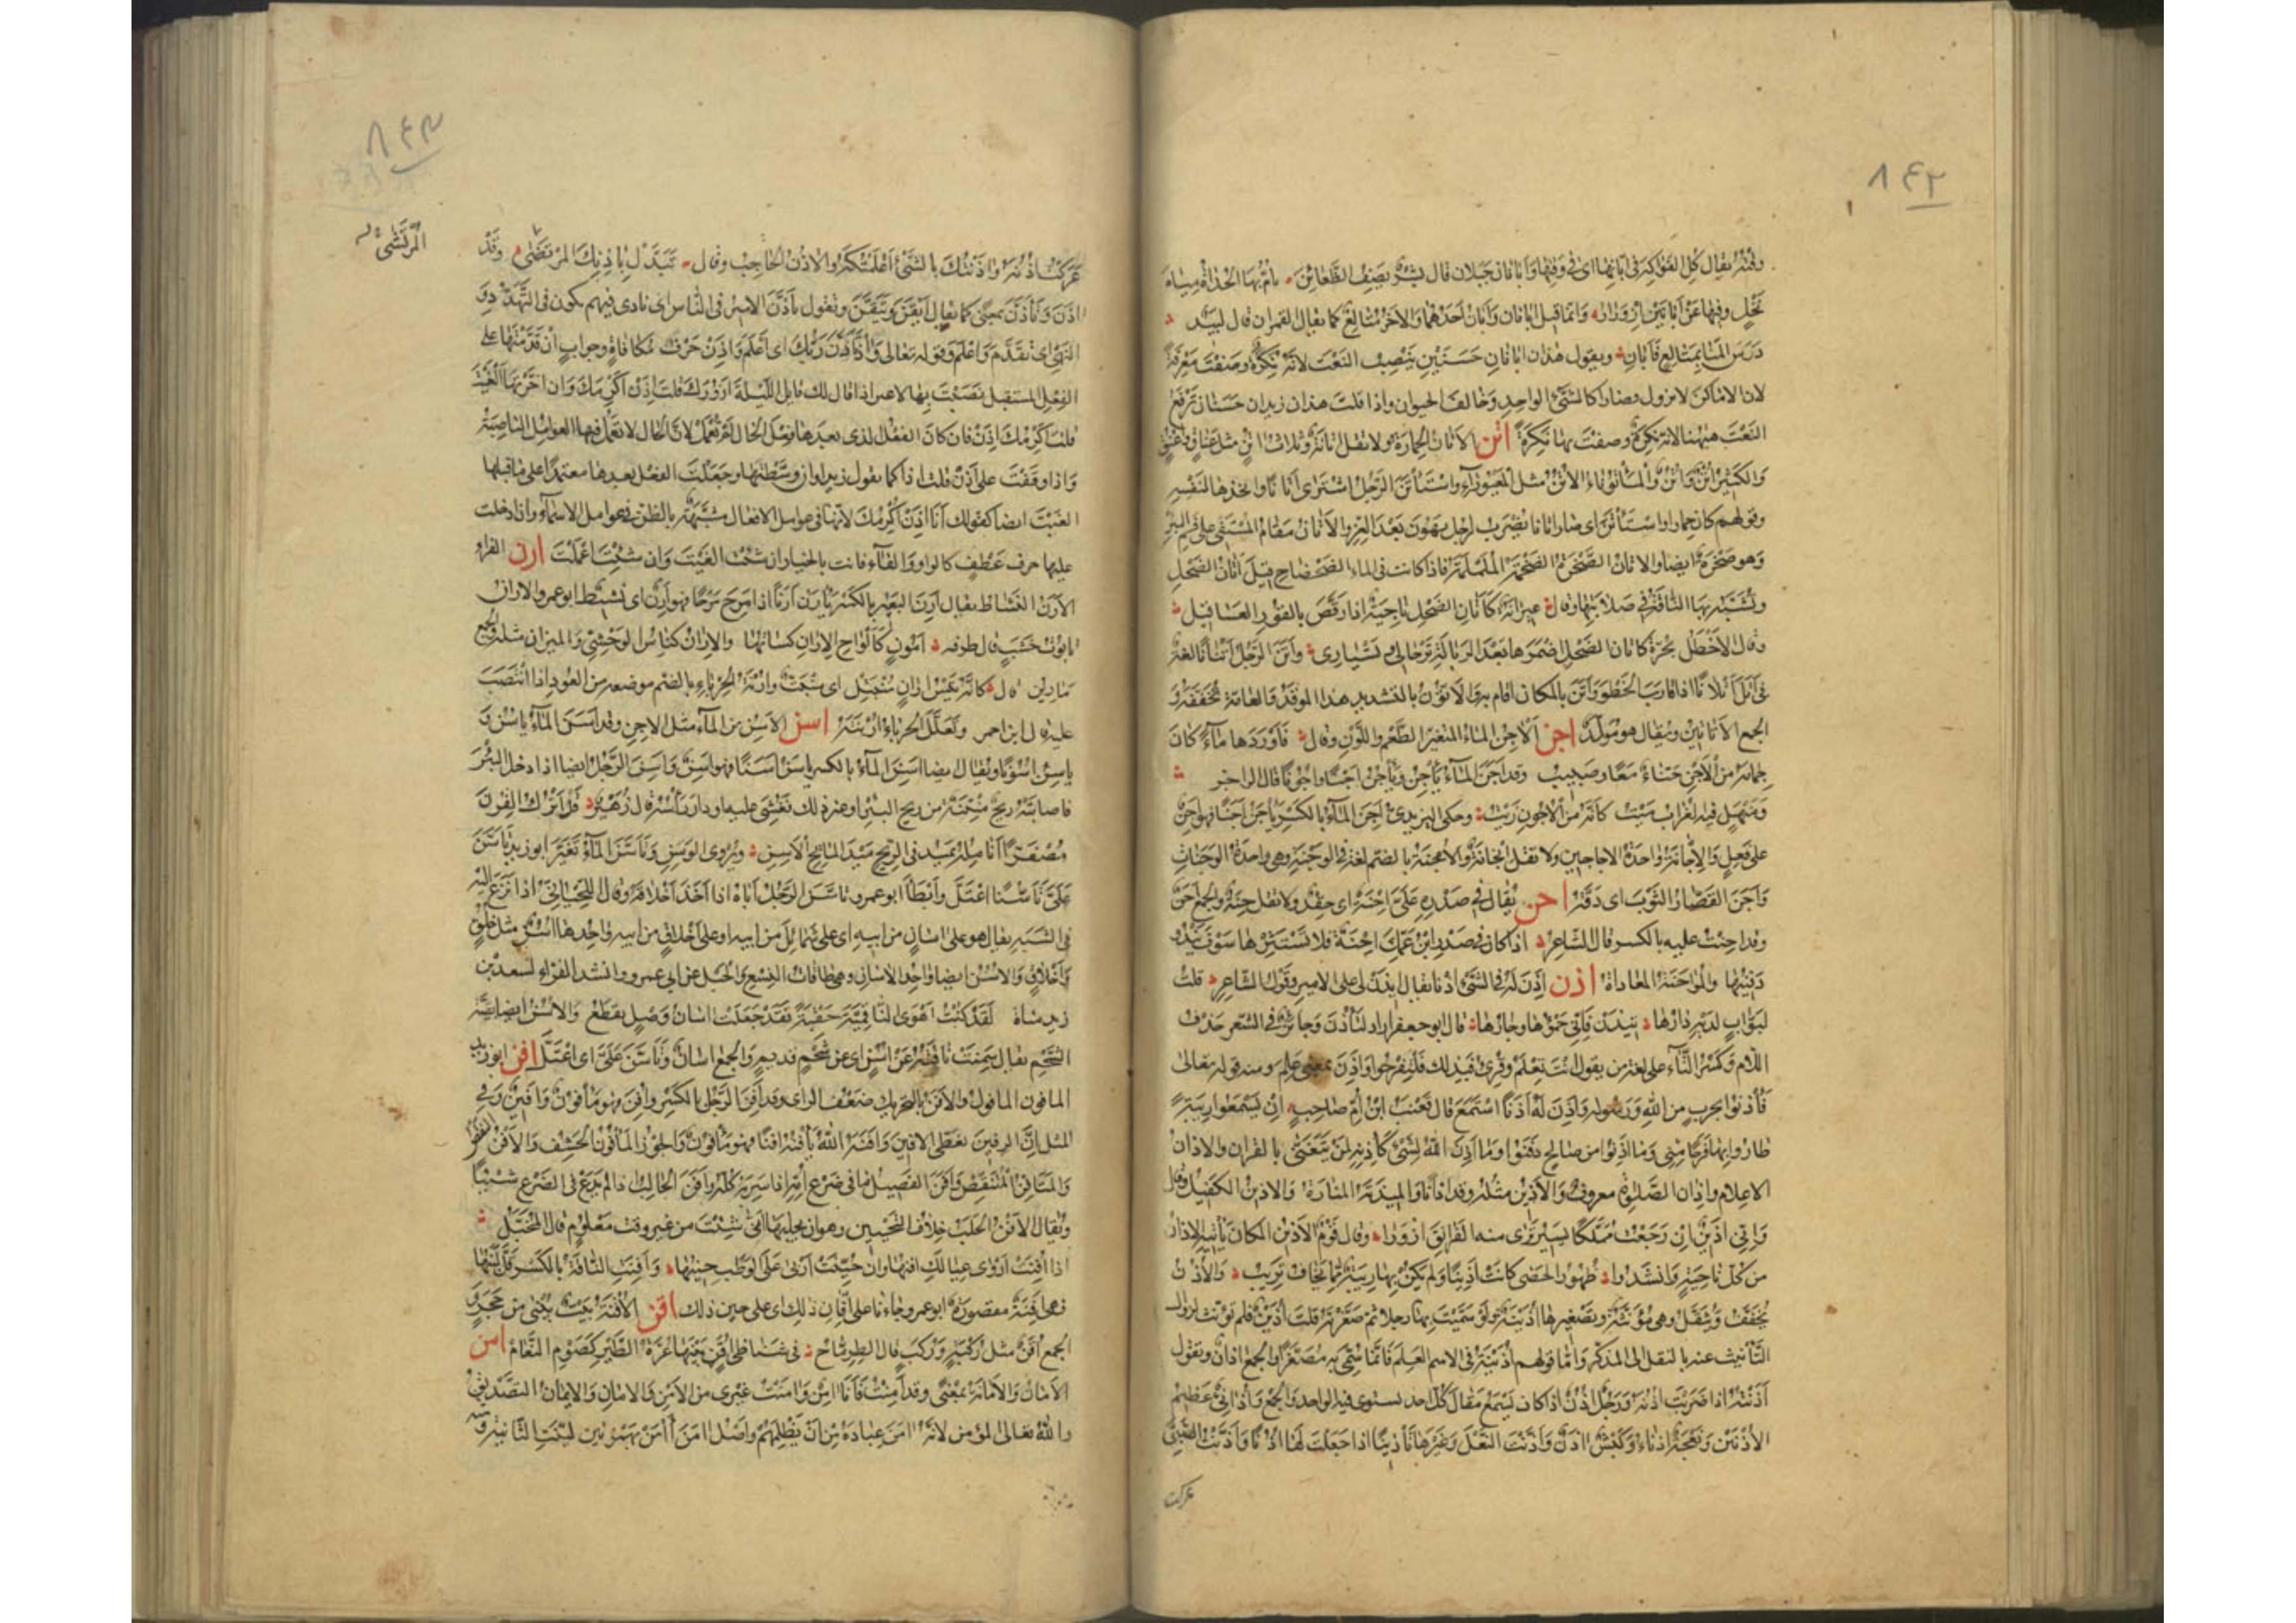 ٨٤٢
وقته يقال كل الفواكه فى ابانها اى فى وقتها وابانان جبلان قال بشر يصف الظعائن يأم بها الحداة مياه
نخل وفيها عن ابانين ازورار وانما قيل ابانان وابان احدهما والاخر متالع كما يقال القمران قال لبيد
درس المنا بمتالع فابان ويقول هذان ابانان حسنين ينصب النعت لانه نكرة وصفت معرفة
لان الاماكن لا تزول فصارا كالشئ الواحد وخالف الحيوان واذا قلت هذان زيدان حسنان ترفع
النعت ههنا لانه نكرة وصفت بها نكرة اتن الاتان الحمارة ولا تقل اتانة وثلاث اتن مثل عناق وعنق
والكثير اتن واتن والمأتوناء الاتن مثل المعيوراء واستأتن الرجل اشترى اتانا واتخذها لنفسه
وقولهم كان حمارا واستأتن اى صار اتانا يضرب لرجل يهون بعد العز والاتان مقام المستقى على فم البئر
وهو صخرة ايضا والاتان الصخرة الضخمة الململمة فاذا كانت فى الماء الضحضاح قيل اتان الضحل
وتشبه بها الناقة فى صلابتها وقال عيرانة كاتان الضحل ناجية اذا رقص بالقور العساقيل
وقال الاخطل بحرة كاتان الضحل اضمرها بعد الربالة ترحالى وتسيارى واتن الرجل اتنانا لغة
فى اتل اتلانا اذا قارب الخطو واتن بالمكان اقام به والاتون بالتشديد هذا الموقد والعامة تخففه و
الجمع الاتاتين ويقال هو مولد اجن الآجن الماء المتغير الطعم واللون وقال فاوردها ماء كان
جمامه من الاجن حناء معا وصبيب وقد اجن الماء يأجن ويأجن اجنا واجونا قال الراجز
ومنهل فيه الغراب ميت كانه من الاجون زيت وحكى اليزيدى اجن الماء بالكسر ياجن اجنا فهو اجن
على فعل والاجانة واحدة الاجاجين ولا تقل انجانة والاجنة بالضم لغة فى الوجنة وهى واحدة الوجنات
واجن القصار الثوب اى دقه احن يقال فى صدره على احنة اى حقد ولا تقل حنة والجمع احن
وقد احنت عليه بالكسر قال الشاعر اذا كان فى صدر ابن عمك احنة فلا تستثرها سوف يبدو
دفينها والمواحنة المعاداة اذن اذن له فى الشئ اذنا يقال ايذن لى على الامير وقول الشاعر قلت
لبواب لديه دارها تيذن فانى حمؤها وجارها قال ابو جعفر اراد لتأذن وجائز فى الشعر حذف
اللام وكسر التاء على لغة من يقول انت تعلم وقرئ فبذلك فلتفرحوا واذن بمعنى علم ومنه قوله تعالى
فأذنوا بحرب من الله ورسوله واذن له اذنا استمع قال قعنب ابن ام صاحب ان يسمعوا ريبة
طاروا بها فرحا منى وما اذنوا من صالح دفنوا وما اذن الله لشئ كاذنه لمن يتغنى بالقران والاذان
الاعلام واذان الصلوة معروف والاذين مثله وقد اذن اذانا والميذنة المنارة والاذين الكفيل وقال
وانى اذين ان رجعت مملكا بسير ترى منه الفرانق ازورا وقال قوم الاذين المكان يأتيه الاذان
من كل ناحية وانشدوا طهور الحصى كانت اذينا ولم تكن بها ريبة مما يخاف تريب والاذن
تخفف وتثقل وهى مؤنثة وتصغيرها اذينة ولو سميت بها رجلا ثم صغرته قلت اذين فلم تؤنث لزوال
التأنيث عنه بالنقل الى المذكر واما قولهم اذينة فى الاسم العلم فانما سمى به مصغرا والجمع اذان وتقول
اذنته اذا ضربت اذنه ورجل اذن اذا كان يسمع مقال كل احد يستوى فيه الواحد والجمع واذانى عظيم
الاذنين ونعجة اذناء وكبش اذن واذنت النعل وغيرها تأذينا اذا جعلت لها اذنا واذنت الصبى
عركت
٨٤٣
المرتضى
عركت اذنه واذنتك بالشئ اعلمتكه والاذن الحاجب وقال تبدل باذنك المرتضى وقد
اذن وتأذن بمعنى كما يقال ايقن وتيقن وتقول تأذن الامير فى الناس اى نادى فيهم يكون فى التهدد و
النهى اى تقدم واعلم وقوله تعالى واذ تأذن ربك اى اعلم واذن حرف مكافاة وجواب ان قدمتها على
الفعل المستقبل نصبت بها لا غير اذا قال لك قايل الليلة ازورك قلت اذن اكرمك وان اخرتها الغيت
قلت اكرمك اذن فان كان الفعل الذى بعدها فعل الحال لم تعمل لان الحال لا تعمل فيها العوامل الناصبة
واذا وقفت على اذن قلت اذا كما تقول زيدا وان وسطتها وجعلت الفعل بعدها معتمدا على ما قبلها
الغيت ايضا كقولك انا اذن اكرمك لانها فى عوامل الافعال مشبهة بالظن فى عوامل الاسماء وان ادخلت
عليها حرف عطف كالواو والفاء فانت بالخيار ان شئت الغيت وان شئت اعملت ارن الفراء
الارن النشاط يقال ارن البعير بالكسر يأرن ارنا اذا مرح مرحا فهو ارن اى نشيط ابو عمرو الاران
تابوت خشب قال طرفه امون كالواح الاران نسأتها والاران كناس الوحشى والميران مثله والجمع
مأرين قال كانه تيس اران منبتل اى منبت وارنة الحرباء بالضم موضعه من العود اذا انتصب
عليه قال ابن احمر وتعلل الحرباء ارنته اسن الآسن من الماء مثل الاجن وقد اسن الماء يأسن و
ياسن اسونا ويقال ايضا اسن الماء بالكسر ياسن اسنا فهو اسن واسن الرجل ايضا اذا دخل البئر
فاصابته ريح منتنة من ريح البئر او غير ذلك فغشى عليه او دار رأسه قال زهير قد اترك القرن
مصفرا انامله يميد فى الرمح ميد المائح الاسن ويروى الوسن وتأسن الماء تغير ابو زيد تأسن
على تأسنا اعتل وابطأ ابو عمرو تاسن الرجل اباه اذا اخذ اخلاقه وقال اللحيانى اذا نزع اليه
فى الشبه يقال هو على اسان من ابيه اى على شمائل من ابيه او على اخلاق من ابيه واحدها اسن مثل خلق
واخلاق والاسن ايضا واحد الاسان وهى طاقات النسع والحبل عن ابى عمرو وانشد الفراء لسعد بن
زيد مناة لقد كنت اهوى الناقمية حقبة فقد جعلت اسان وصل تقطع والاسن ايضا بقية
الشحم يقال سمنت ناقته عن اسن اى عن شحم قديم والجمع اسان وتأسن على اى اعتل افن ابو زيد
المافون المافول والافن بالتحريك ضعف الراى وقد افن الرجل بالكسر وافن فهو مأفون وافين وفى
المثل ان الرقين تغطى افن الافين وافنه الله يأفنه افنا فهو مأفون والجوز المأفون الحشف والافن النقص
والمتافن المتنقص وافن الفصيل ما فى ضرع امه اذا شربه كله وافن الحالب اذا لم يدع فى الضرع شيئا
ويقال الافن الحلب خلاف التحيين وهو ان تحلبها انى شئت من غير وقت معلوم قال المخبل
اذا افنت اروى عيالك افنها وان حينت اربى على الوطب حينها وافنت الناقة بالكسر قل لبنها
فهى افنة مقصورة ابو عمرو جاءنا على افان ذلك اى على حين ذلك اقن الاقنة بيت يبنى من حجر و
الجمع اقن مثل ركبة وركب قال الطرماح فى شناظى اقن بينها عرة الطير كصوم النعام امن
الامان والامانة بمعنى وقد امنت فانا امن وامنت غيرى من الامن والامان والايمان التصديق
والله تعالى المؤمن لانه امن عباده من ان يظلمهم واصل امن أأمن بهمزتين لينت الثانية و